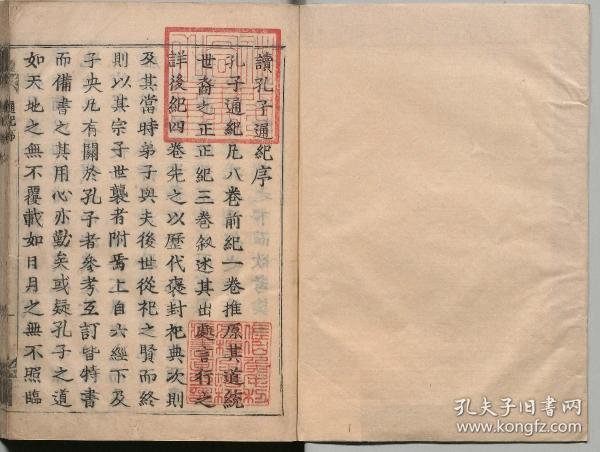 讀孔子通紀序
孔子通紀凡八卷前紀一卷推原其道統
世裔之正正紀三卷叙述其出處言行之
詳後紀四卷先之以歷代褒封祀典次則
及其當時弟子與夫後世從祀之賢而終
則以其宗子世襲者附焉上自六經下及
子史凡有關於孔子者參考互訂皆特書
而備書之其用心亦勤矣或疑孔子之道
如天地之無不覆載如日月之無不照臨
孔夫子旧书网
www.kongfz.com